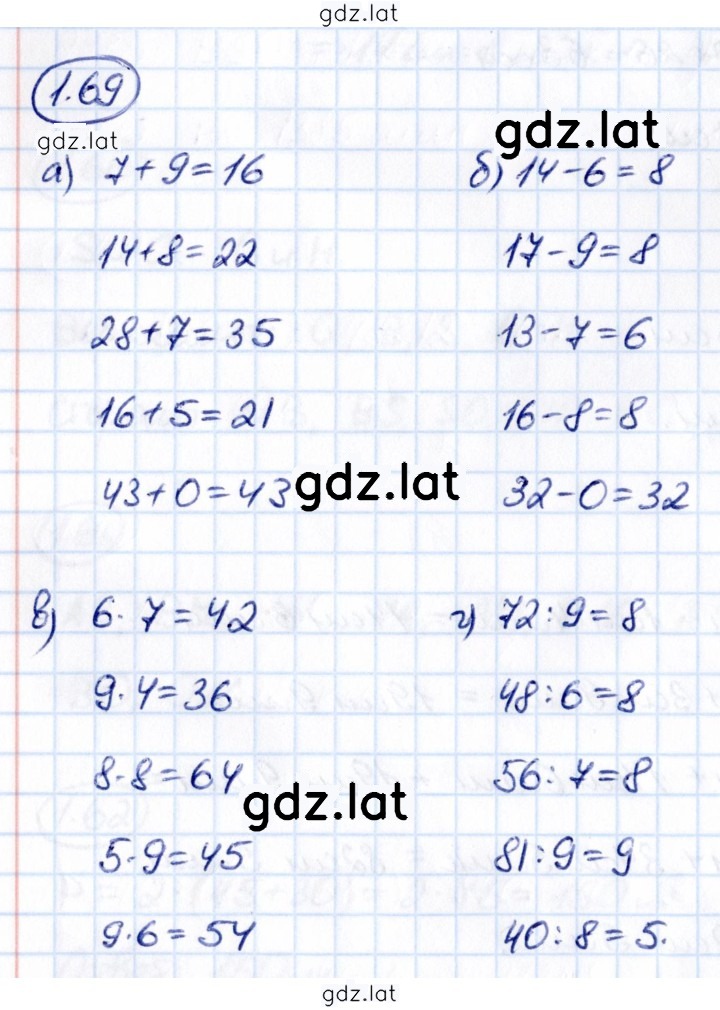 gdz.lat
1.69
gdz.lat
gdz.lat
а) 7 + 9 = 16
14 + 8 = 22
28 + 7 = 35
16 + 5 = 21
43 + 0 = 43
б) 14 - 6 = 8
17 - 9 = 8
13 - 7 = 6
16 - 8 = 8
32 - 0 = 32
gdz.lat
в) 6 · 7 = 42
9 · 4 = 36
8 · 8 = 64
5 · 9 = 45
9 · 6 = 54
г) 72 : 9 = 8
48 : 6 = 8
56 : 7 = 8
81 : 9 = 9
40 : 8 = 5.
gdz.lat
gdz.lat